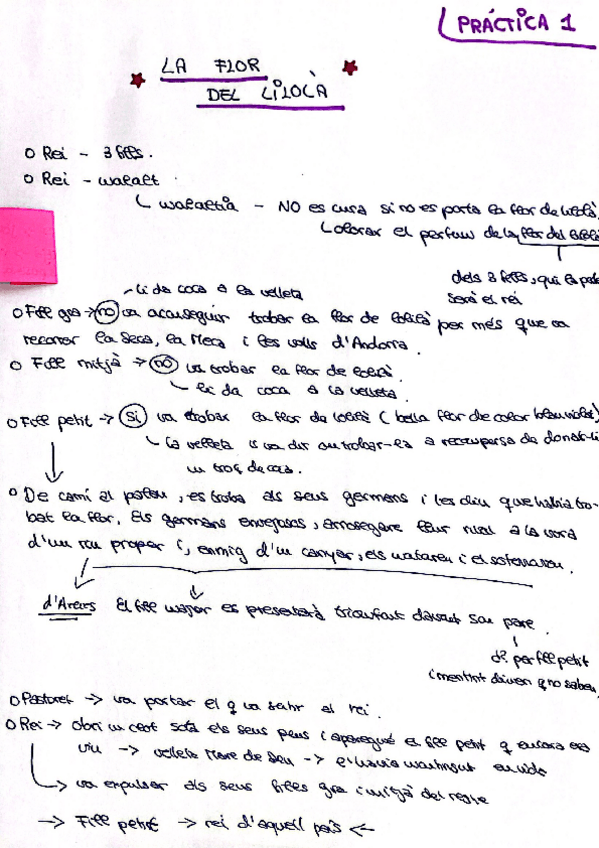 PRÀCTICA 1
LA FLOR
DEL LILOLÀ
Rei - 3 fills.
Rei - malalt
malaltia - NO es cura si no es porta la flor de lilolà,
olorar el perfum de la flor del lilolà
dels 3 fills, qui la porti
serà el rei
li da coca a la velleta
Fill gra → no va aconseguir trobar la flor de lolilà per més que va
recorrer la Seca, la Meca i les valls d'Andorra.
Fill mitjà → no va trobar la flor de lolilà.
li da coca a la velleta.
Fill petit → sí va trobar la flor de lolilà (bella flor de color blau violat)
la velleta li va dir on trobar-la a recompensa de donar-li
un troç de coca.
De camí al palau, es troba als seus germans i les diu que havia tro-
bat la flor. Els germans envejosos, la vora
d'un riu proper i, enmig d'un canyar, els mataren i el soterraren.
d'Arenes El fill major es presentarà triomfant davant son pare.
d? per fill petit
i mentint daven q no sabeu
Pastoret → va portar el q va sentir al rei.
Rei → obri un clot sota els seus peus i aparegué el fill petit q encara era
viu → velleta Mare de Déu → l'havia mantingut en vida
→ va expulsar als seus filles gra i mitjà del regne
→ Fill petit → rei d'aquell país ←